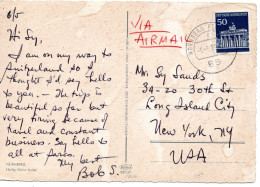 6/5
VIA
AIRMAIL
Hi Sy,
I am on my way to
Switzerland so I
thought I'd say hello
to you. – The trip is
beautiful so far but
very tiring because of
travel and constant
business. Say hello to
all at
Very best
Bob S.
50
Mr. Sy Sands
34-20 30th St
Long Island City
New York, NY
USA